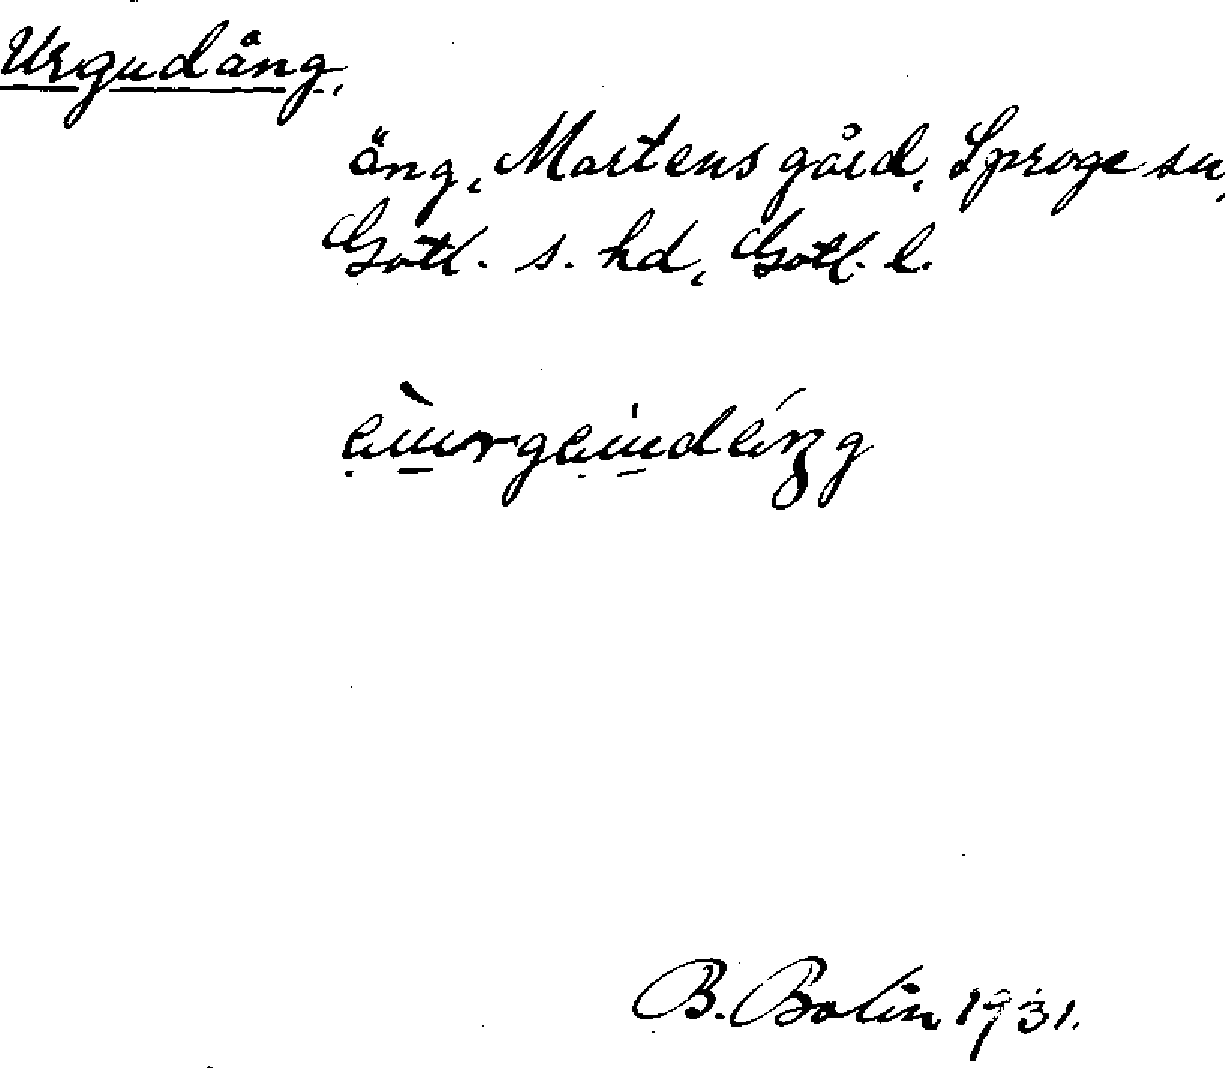 Urgudäng,
äng, Mårtens gård, Sproge sn,
Gotl. s. hd, Gotl. l.
B. Bolin 1931.